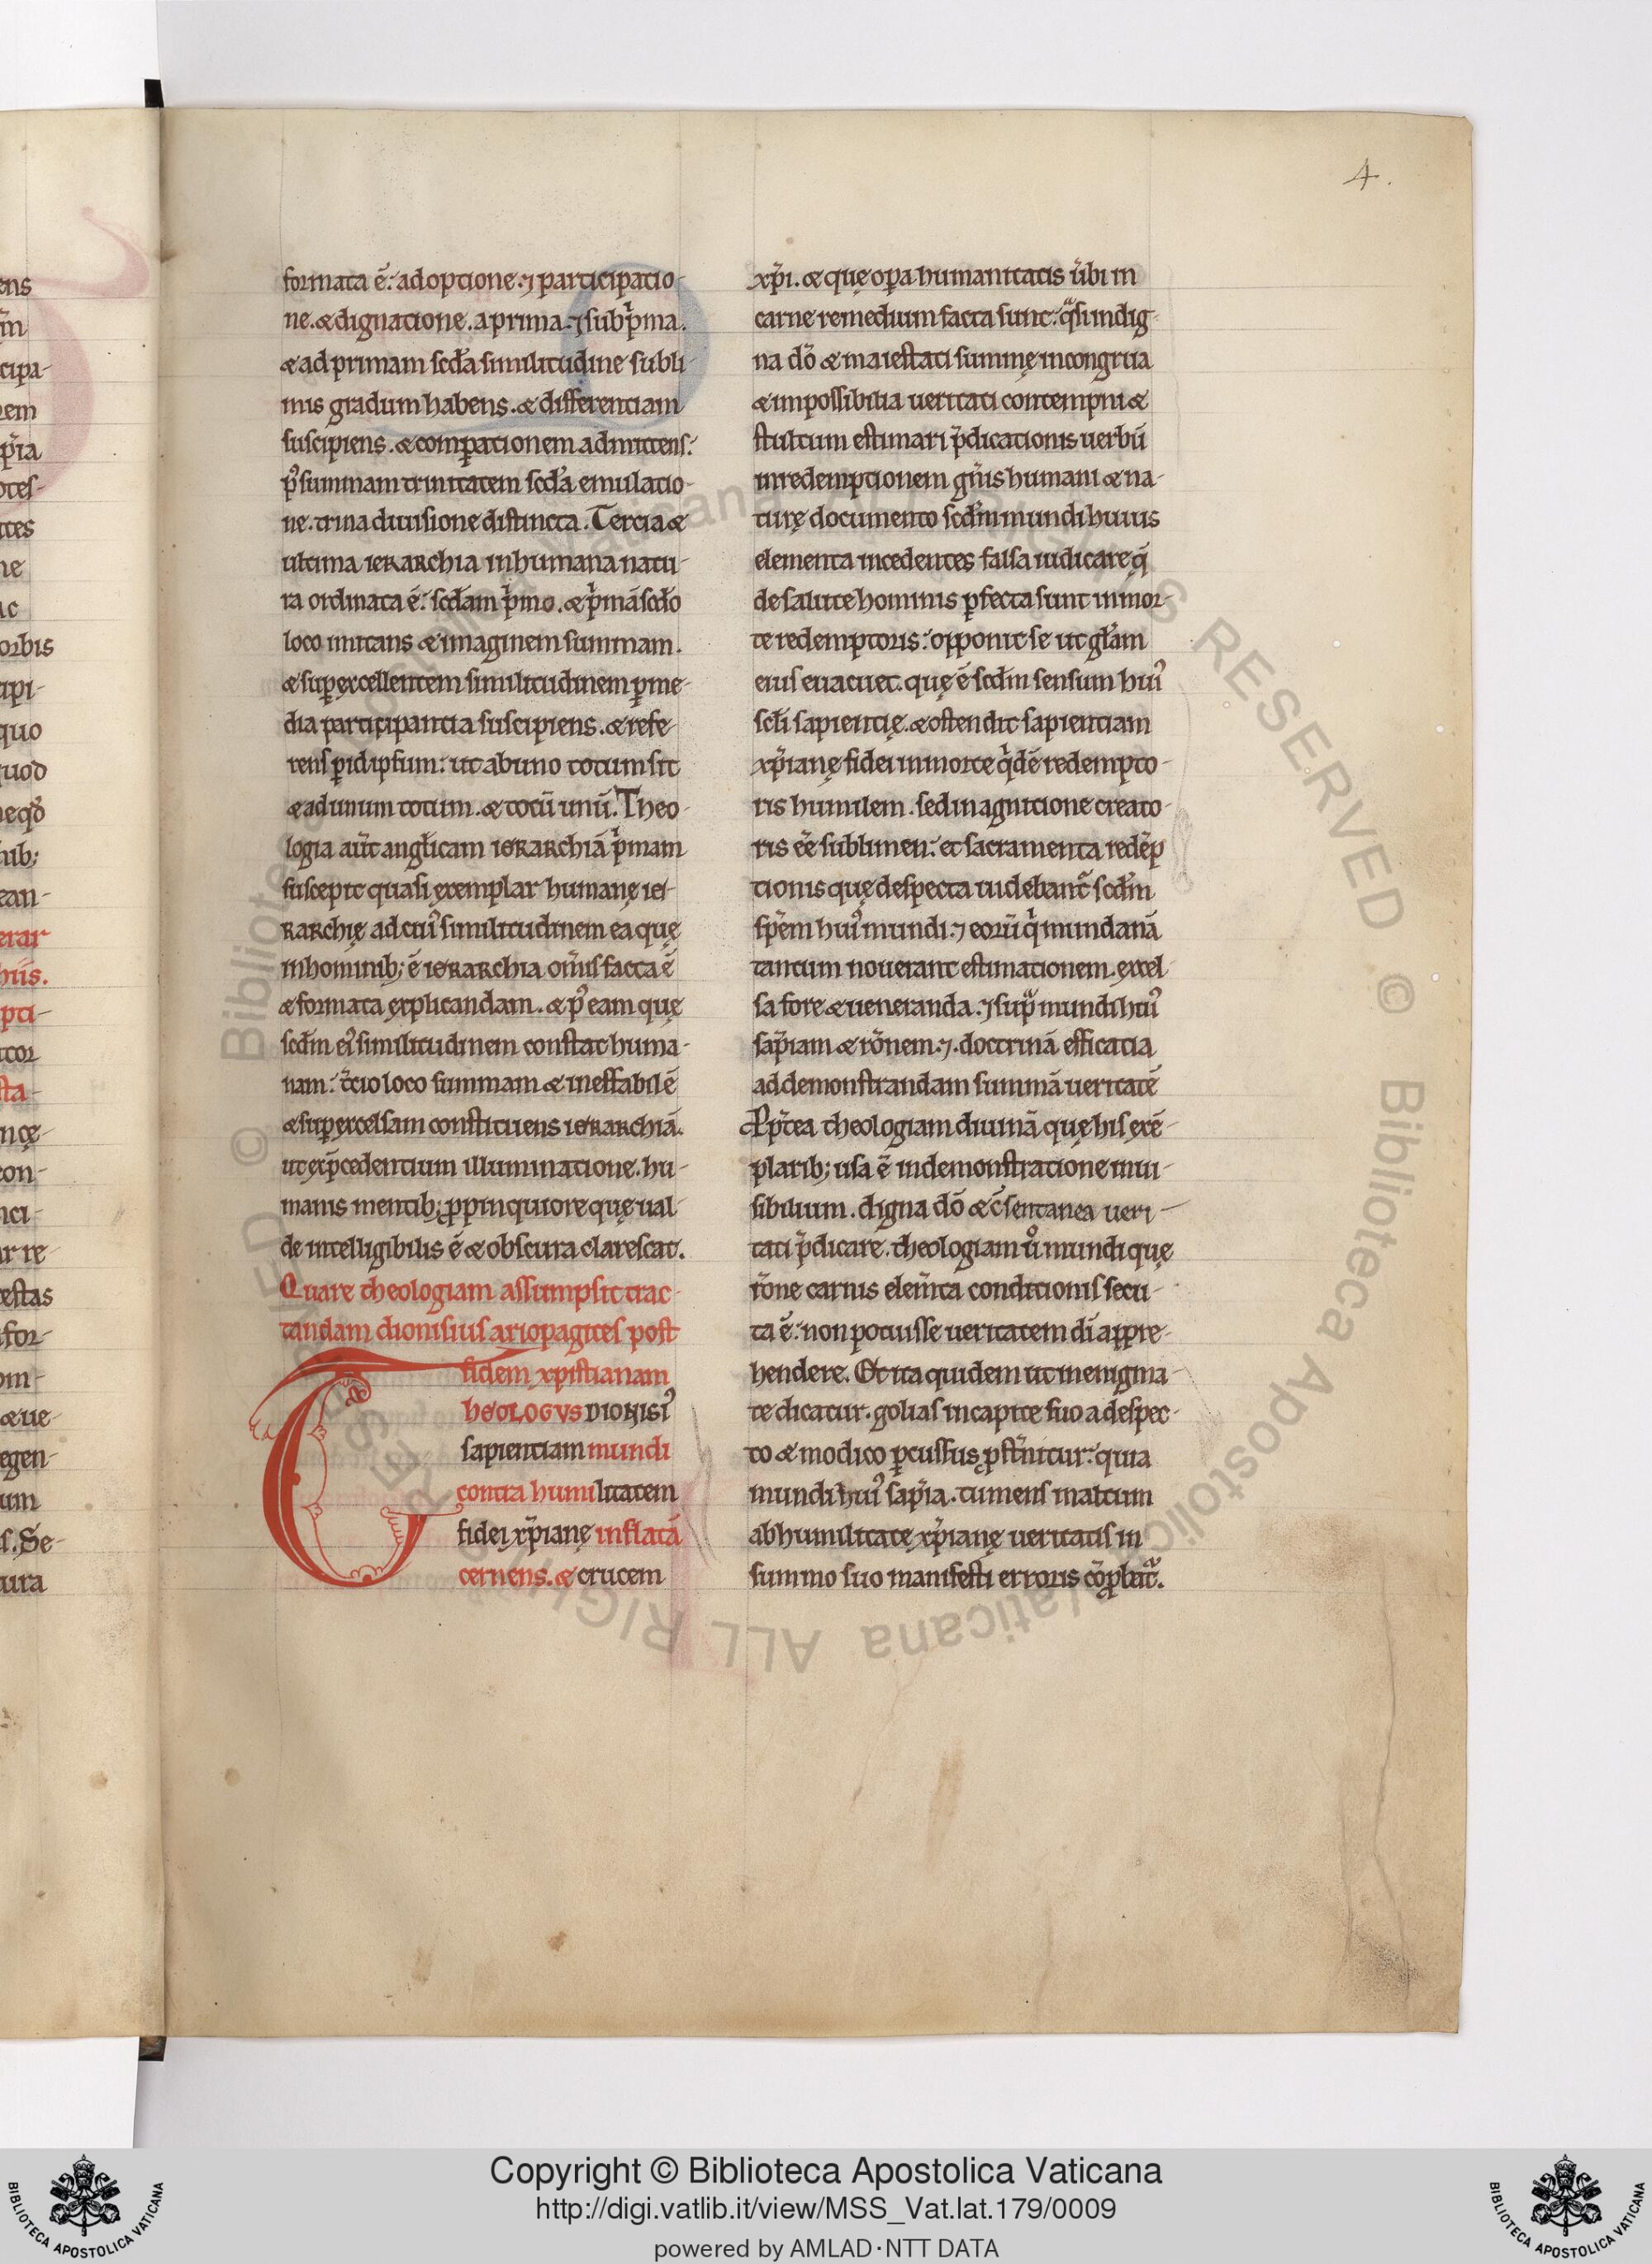 4.
formata ē: adoptione. ⁊ participatio-
ne. & dignatione. a prima. ⁊ sub pͥma.
& ad primam scďa similitudine subli-
mis gradum habens. & differentiam
suscipiens. & comꝑationem admittens:
p᷒ summam trinitatem scďa emulatio-
ne. trina diuisione distincta. Tercia &
ultima ierarchia in humana natu-
ra ordinata ē: scďam pͥmo. & pͥmā scďo
loco imitans & imaginem summam.
& suꝑexcellentem similitudinem ꝑ me-
dia participantia suscipiens. & refe-
rens ꝑ id ipsum: ut ab uno totum sit
& ad unum totum. & totū unū. Theo-
logia aūt angłicam ierarchiā pͥmam
suscepit quasi exemplar humanę ie-
rarchię ad cui᷒ similitudinem ea quę
in hominib; ē ierarchia om̄is facta ē
& formata explicandam. & p᷒ eam quę
scďm ei᷒ similitudinem constat huma-
nam: t̄cio loco summam & ineffabilē
& suꝑexcelsam constituens ierarchiā.
ut ex p̄cedentium illuminatione. hu-
manis mentib; ꝓpinquiore quę ual-
de intelligibilis ē & obscura clarescat.
Quare theologiam assumpsit trac-
tandam dionisius ariopagites post
fidem xpistianam
THEOLOGVS DIONISI᷒
sapientiam mundi
contra humilitatem
fidei xp̄ianę inflatā
cernens. & crucem
xp̄i. & quę oꝑa humanitatis ūbi in
carne remedium facta sunt: qͣsi indig-
na dō & maiestati summę incongrua
& impossibilia ueritati contempni &
stultum estimari p̄dicationis uerbū
in redemptionem gn̄is humani & na-
turę documento scďm mundi huius
elementa incedentes falsa iudicare q̄
de salute hominis ꝑfecta sunt in mor-
te redemptoris: opponit se ut głam
eius euacuet. quę ē scďm sensum hui᷒
scłi sapientię. & ostendit sapientiam
xp̄ianę fidei in morte qͥdē redempto-
ris humilem. sed in agnitione creato-
ris eē sublimen: et sacramenta redēp
tionis quę despecta uidebant᷑ scďm
sp̄em hui᷒ mundi. ⁊ eorū qͥ mundanā
tantum nouerant estimationem. excel-
sa fore & ueneranda. ⁊ supͣ mundi hui᷒
sap̄iam & rōnem. ⁊. doctrinā efficatia
ad demonstrandam summā ueritatē
Pp̄tea theologiam diuinā quę his exē-
plarib; usa ē in demonstratione inui-
sibilium. digna dō & c̄sentanea ueri-
tati p̄dicare. theologiam uͦ mundi quę
rōne carnis elem̄ta conditionis secu-
ta ē: non potuisse ueritatem dī appre-
hendere. Et ita quidem ut in enigma-
te dicatur. golias in capite suo a despec-
to & modico ꝑcussus, ꝓst̄nitur: quia
mundi hui᷒ sap̄ia. tumens in altum
ab humilitate xp̄ianę ueritatis in
summo suo manifesti erroris cōꝓbat᷑.
ens
cipa-
nem
tces
orbis
quo
quod
ean-
erar
hiis.
pti-
con-
nci-
ar re
estas
for-
& ue
egen-
um
s. Se-
ura
© Biblioteca Apostolica Vaticana ALL RIGHTS RESERVED © Biblioteca Apostolica Vaticana ALL RIGHTS RESERVED
BIBLIOTECA APOSTOLICA VATICANA
Copyright © Biblioteca Apostolica Vaticana
http://digi.vatlib.it/view/MSS_Vat.lat.179/0009
powered by AMLAD·NTT DATA
BIBLIOTECA APOSTOLICA VATICANA